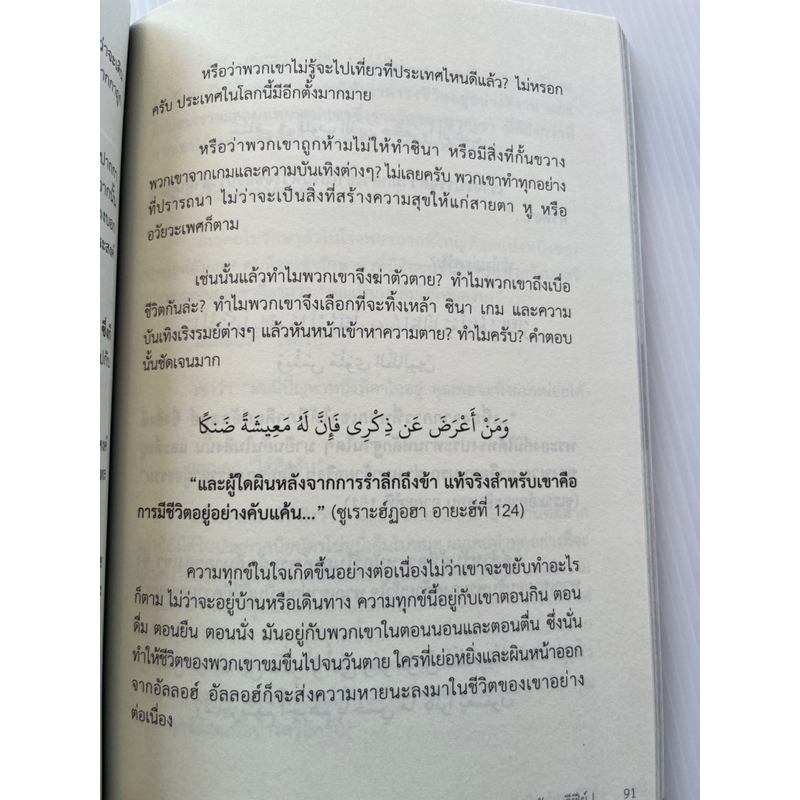 หรือว่าพวกเขาไม่รู้จะไปเที่ยวที่ประเทศไหนดีแล้ว? ไม่หรอก
ครับ ประเทศในโลกนี้มีอีกตั้งมากมาย
หรือว่าพวกเขาถูกห้ามไม่ให้ทำซินา หรือมีสิ่งที่กั้นขวาง
พวกเขาจากเกมและความบันเทิงต่างๆ? ไม่เลยครับ พวกเขาทำทุกอย่าง
ที่ปรารถนา ไม่ว่าจะเป็นสิ่งที่สร้างความสุขให้แก่สายตา หู หรือ
อวัยวะเพศก็ตาม
เช่นนั้นแล้วทำไมพวกเขาจึงฆ่าตัวตาย? ทำไมพวกเขาถึงเบื่อ
ชีวิตกันล่ะ? ทำไมพวกเขาจึงเลือกที่จะทิ้งเหล้า ซินา เกม และความ
บันเทิงเริงรมย์ต่างๆ แล้วหันหน้าเข้าหาความตาย? ทำไมครับ? คำตอบ
นั้นชัดเจนมาก
وَمَنْ أَعْرَضَ عَن ذِكْرِى فَإِنَّ لَهُ مَعِيشَةً ضَنكًا
“และผู้ใดผินหลังจากการรำลึกถึงข้า แท้จริงสำหรับเขาคือ
การมีชีวิตอยู่อย่างคับแค้น...” (ซูเราะฮ์ฏอฮา อายะฮ์ที่ 124)
ความทุกข์ในใจเกิดขึ้นอย่างต่อเนื่องไม่ว่าเขาจะขยับทำอะไร
ก็ตาม ไม่ว่าจะอยู่บ้านหรือเดินทาง ความทุกข์นี้อยู่กับเขาตอนกิน ตอน
ดื่ม ตอนยืน ตอนนั่ง มันอยู่กับพวกเขาในตอนนอนและตอนตื่น ซึ่งนั่น
ทำให้ชีวิตของพวกเขาขมขื่นไปจนวันตาย ใครที่เย่อหยิ่งและผินหน้าออก
จากอัลลอฮ์ อัลลอฮ์ก็จะส่งความหายนะลงมาในชีวิตของเขาอย่าง
ต่อเนื่อง
91